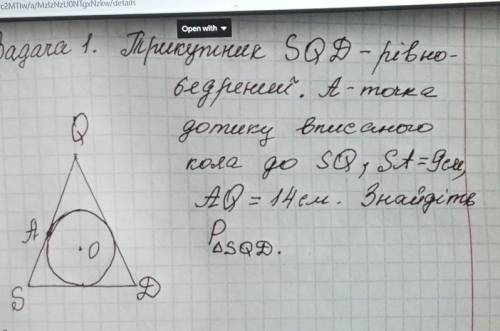 c2MTIw/a/MzIzNzU0NTgxNzkw/details
Open with
Задача 1. Трикутник SQD - рівно-
бедрений. А-точка
дотику вписаного
кола до SQ, SA=9см,
AQ=14см. Знайдіть
P△SQD.
Q
A
O
S
D